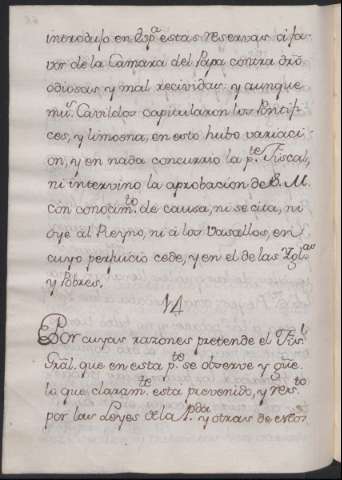 introdujo en Esp.ª estas reservas á fa-
vor de la Camara del Papa contra dro
odiosas, y mal recividas. y aunque
mu.s Cavildos capitularon los Pontifi-
ces, y limosna, en esto hubo variaci-
on, y en nada concurrio la p.te Fiscal,
ni intervino la aprobacion de S. M.
con conocim.to de causa, ni se cita, ni
oye al Reyno, ni á los Vasallos, en
cuyo perjuicio cede, y en el de las Ygl.as
y Pobres.
14
Por cuyas razones pretende el Fis.l
Gräl. que en esta p.te se observe y g.üe
la que claram.te esta prevenido, y res.to
por las Leyes de la P.da y otras de estos